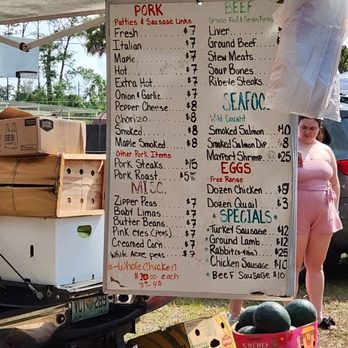 PORK
Patties & Sausage Links
Fresh $7
Italian $7
Maple $7
Hot $7
Extra Hot $7
Onion & Garlic $7
Pepper Cheese $8
Chorizo $8
Smoked $8
Maple Smoked $8
Other Pork Items
Pork Steaks $15
Pork Roast $5
MISC.
Zipper Peas $7
Baby Limas $7
Butter Beans $7
Pink Eyes (Peas) $7
Creamed Corn $7
White Acre Peas $7
Whole Chicken
each
BEEF
Liver
Ground Beef
Stew Meats
Soup Bones
Ribeye Steaks
SEAFOO
Wild Caught
Smoked Salmon $10
Smoked Salmon Dip $8
Mayport Shrimp $25
EGGS
Free Range
Dozen Chicken $8
Dozen Quail $3
SPECIALS
Turkey Sausage $42
Ground Lamb $12
Rabbit $25
Chicken Sausage $10
Beef Sausage $10